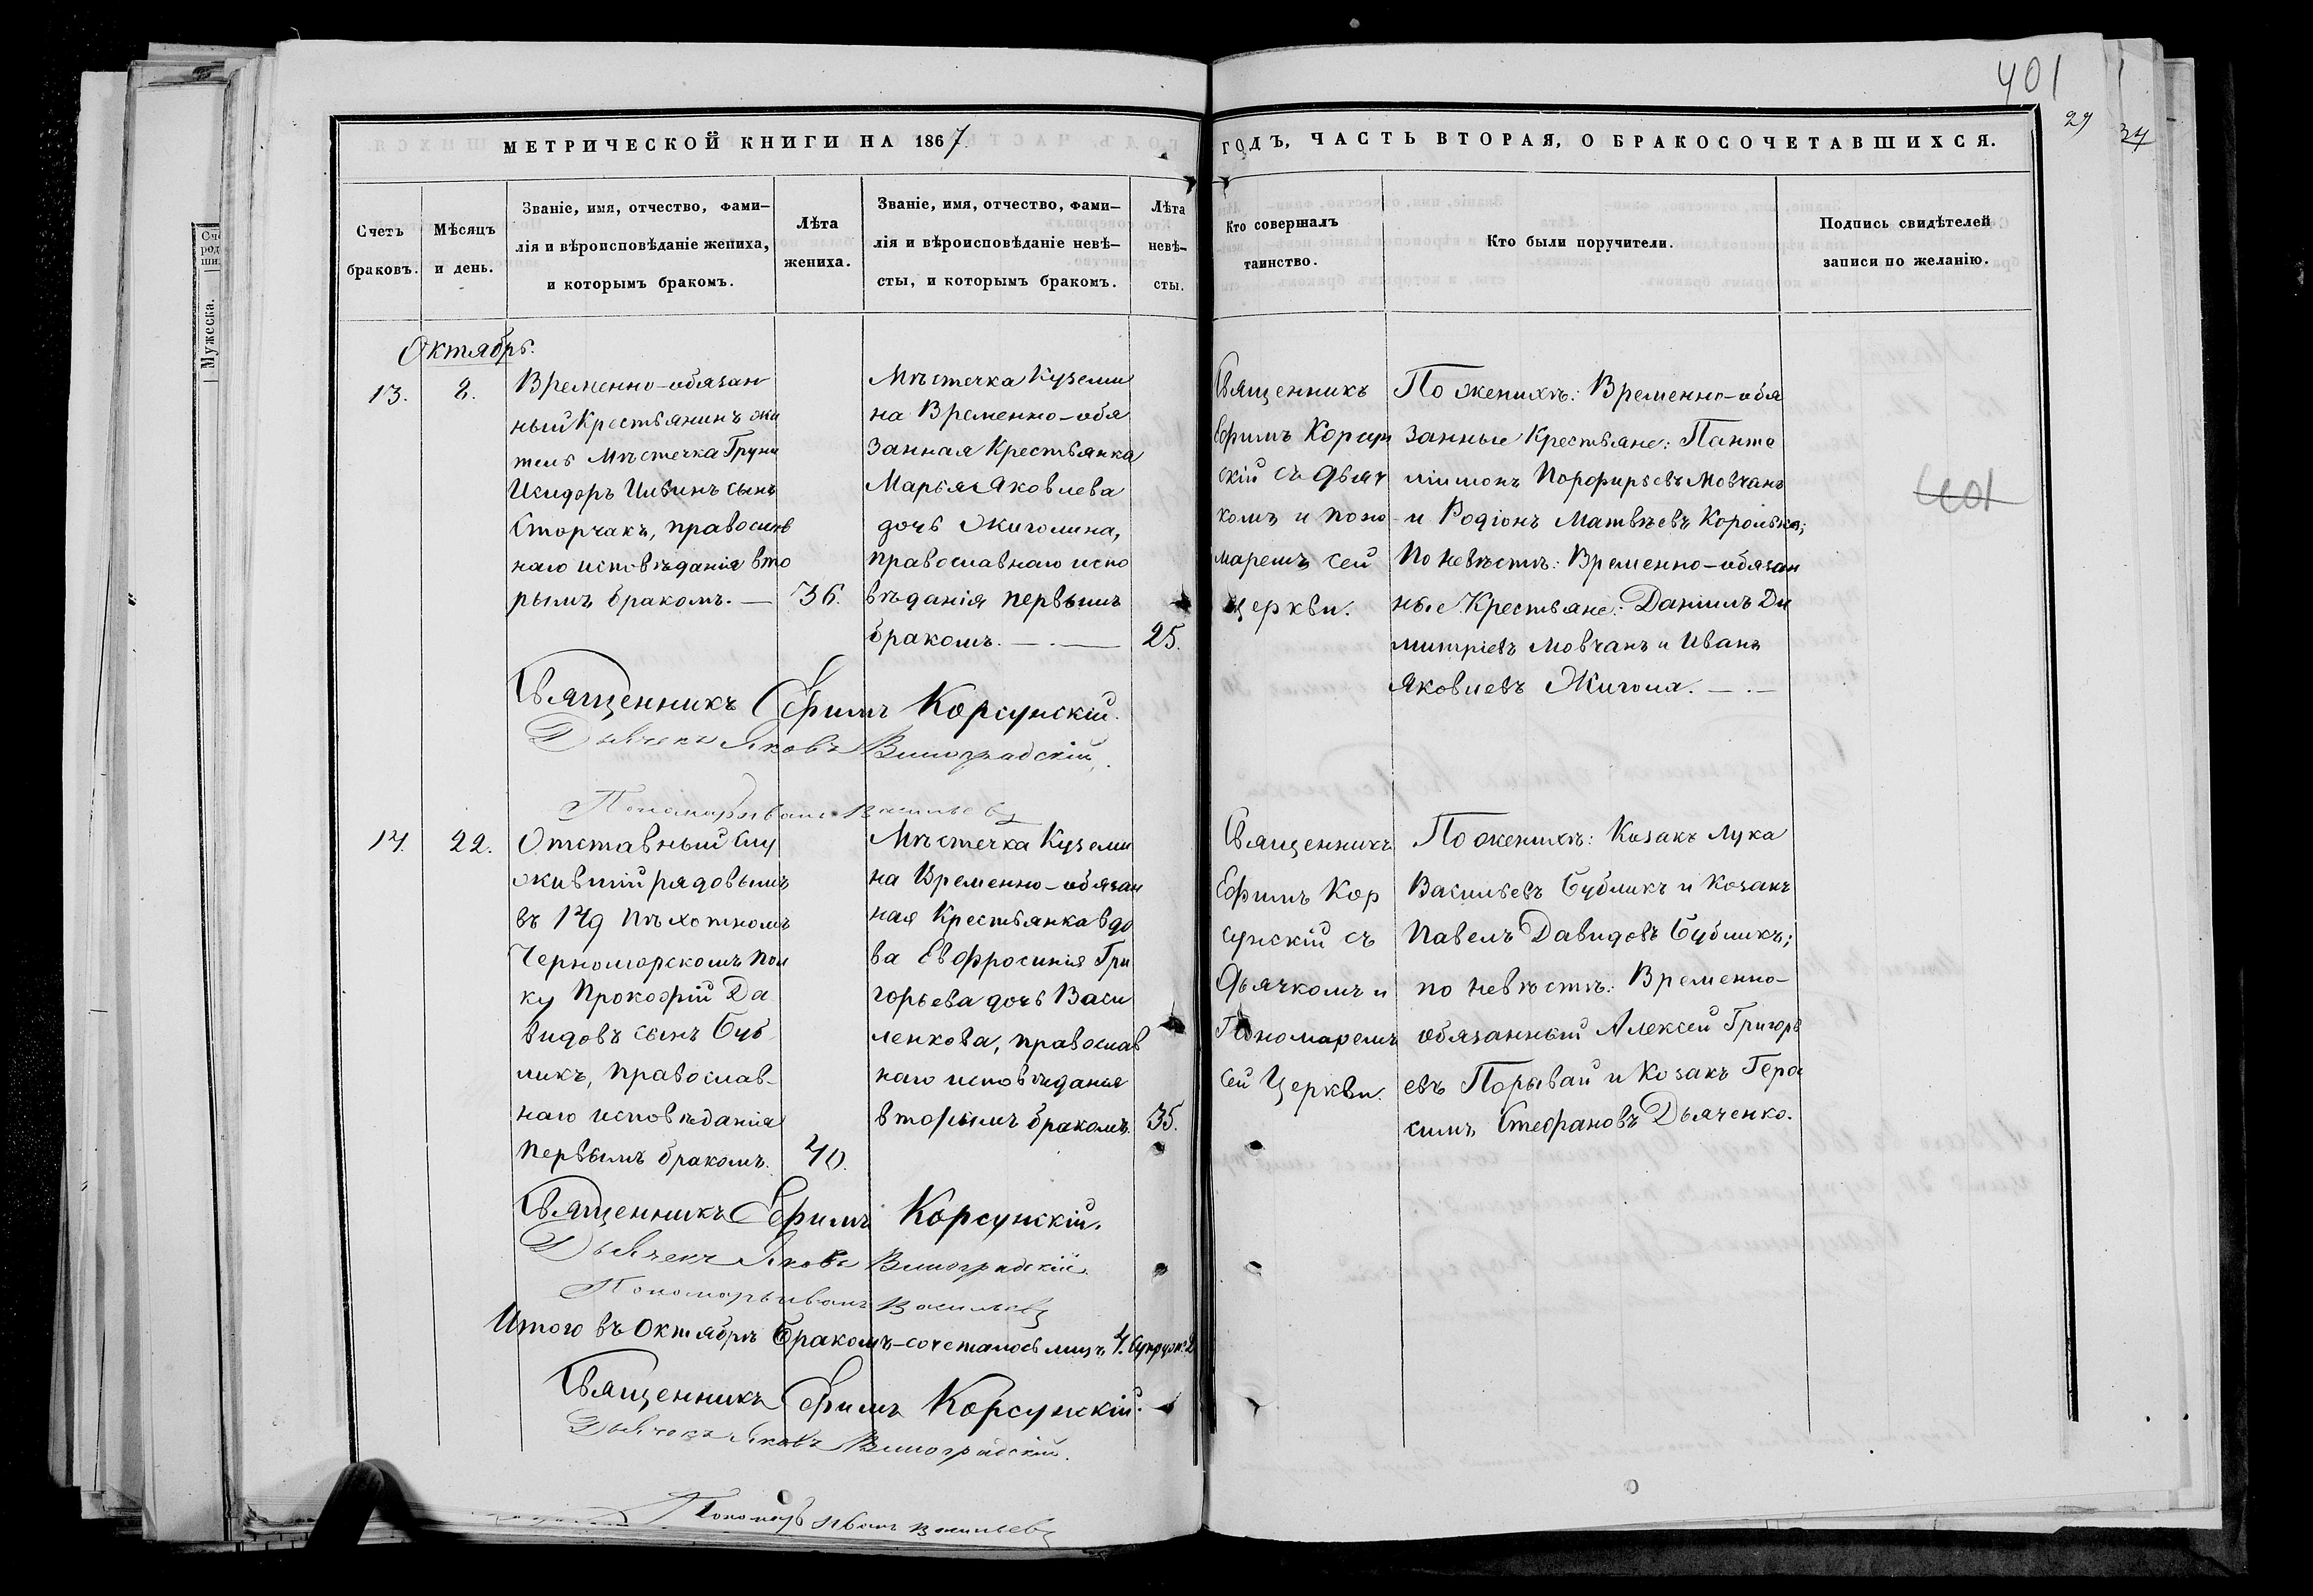 401
29
34
МЕТРИЧЕСКОЙ КНИГИ НА 1867.
ГОДЪ, ЧАСТЬ ВТОРАЯ, О БРАКОСОЧЕТАВШИХСЯ.
Счетъ
браковъ.
Мѣсяцъ
и день.
Званіе, имя, отчество, фами-
лія и вѣроисповѣданіе жениха,
и которымъ бракомъ.
Лѣта
жениха.
Званіе, имя, отчество, фами-
лія и вѣроисповѣданіе невѣ-
сты, и которымъ бракомъ.
Лѣта
невѣ-
сты.
Кто совершалъ
таинство.
Кто были поручители.
Подпись свидѣтелей
записи по желанію.
Мужеска.
Октябрь.
13.
2.
Временно-обязан
ный Крестьянинъ жи
тель Мѣстечка Груни
Исидоръ Ивинъ сынъ
Сторчакъ, православ
наго исповѣданія вто
рымъ бракомъ. —
36.
Мѣстечка Куземи
на Временно-обя
занная Крестьянка
Марья Яковлева
дочь Жиголина,
православнаго испо
вѣданія первымъ
бракомъ. —
25.
Священникъ
Ефимъ Корсун
скій съ Дьяч
комъ и поно
маремъ сей
Церкви.
По женихѣ: Временно-обя
занные Крестьяне: Панте
лиимонъ Порфирьевъ Мовчанъ
и Родіонъ Матвѣевъ Королько;
По невѣстѣ: Временно-обязан
ные Крестьяне: Даніилъ Ди
митріевъ Мовчанъ и Иванъ
Яковлевъ Жигола. —
401
Священникъ Ефимъ Корсунскій.
Дьячекъ Яковъ Виноградскій.
Пономарь Иванъ Васильевъ
14.
22.
Отставный слу
жившій рядовымъ
въ 149 Пѣхотномъ
Черноморскомъ пол
ку Прокофій Да
видовъ сынъ Буб
ликъ, православ-
наго исповѣданія
первымъ бракомъ.
40.
Мѣстечка Куземи
на Временно-обязан
ная Крестьянка вдо
ва Евфросинія Гри
горьева дочь Васи
ленкова, православ
наго исповѣданія
вторымъ бракомъ.
35.
Священникъ
Ефимъ Кор
сунскій съ
Дьячкомъ и
Пономаремъ
сей Церкви.
По женихѣ: Козакъ Лука
Васильевъ Бубликъ и Козакъ
Павелъ Давидовъ Бубликъ;
по невѣстѣ: Временно-
обязанный Алексей Григорь
евъ Порывай и Козакъ Гера
симъ Стефановъ Дьяченко.
Священникъ Ефимъ Корсунскій.
Дьячекъ Яковъ Виноградскій.
Пономарь Иванъ Васильевъ
Итого въ Октябрѣ Бракомъ-сочеталось лицъ 4. супруж. 2
Священникъ Ефимъ Корсунскій.
Дьячекъ Яковъ Виноградскій.
Пономарь Иванъ Васильевъ